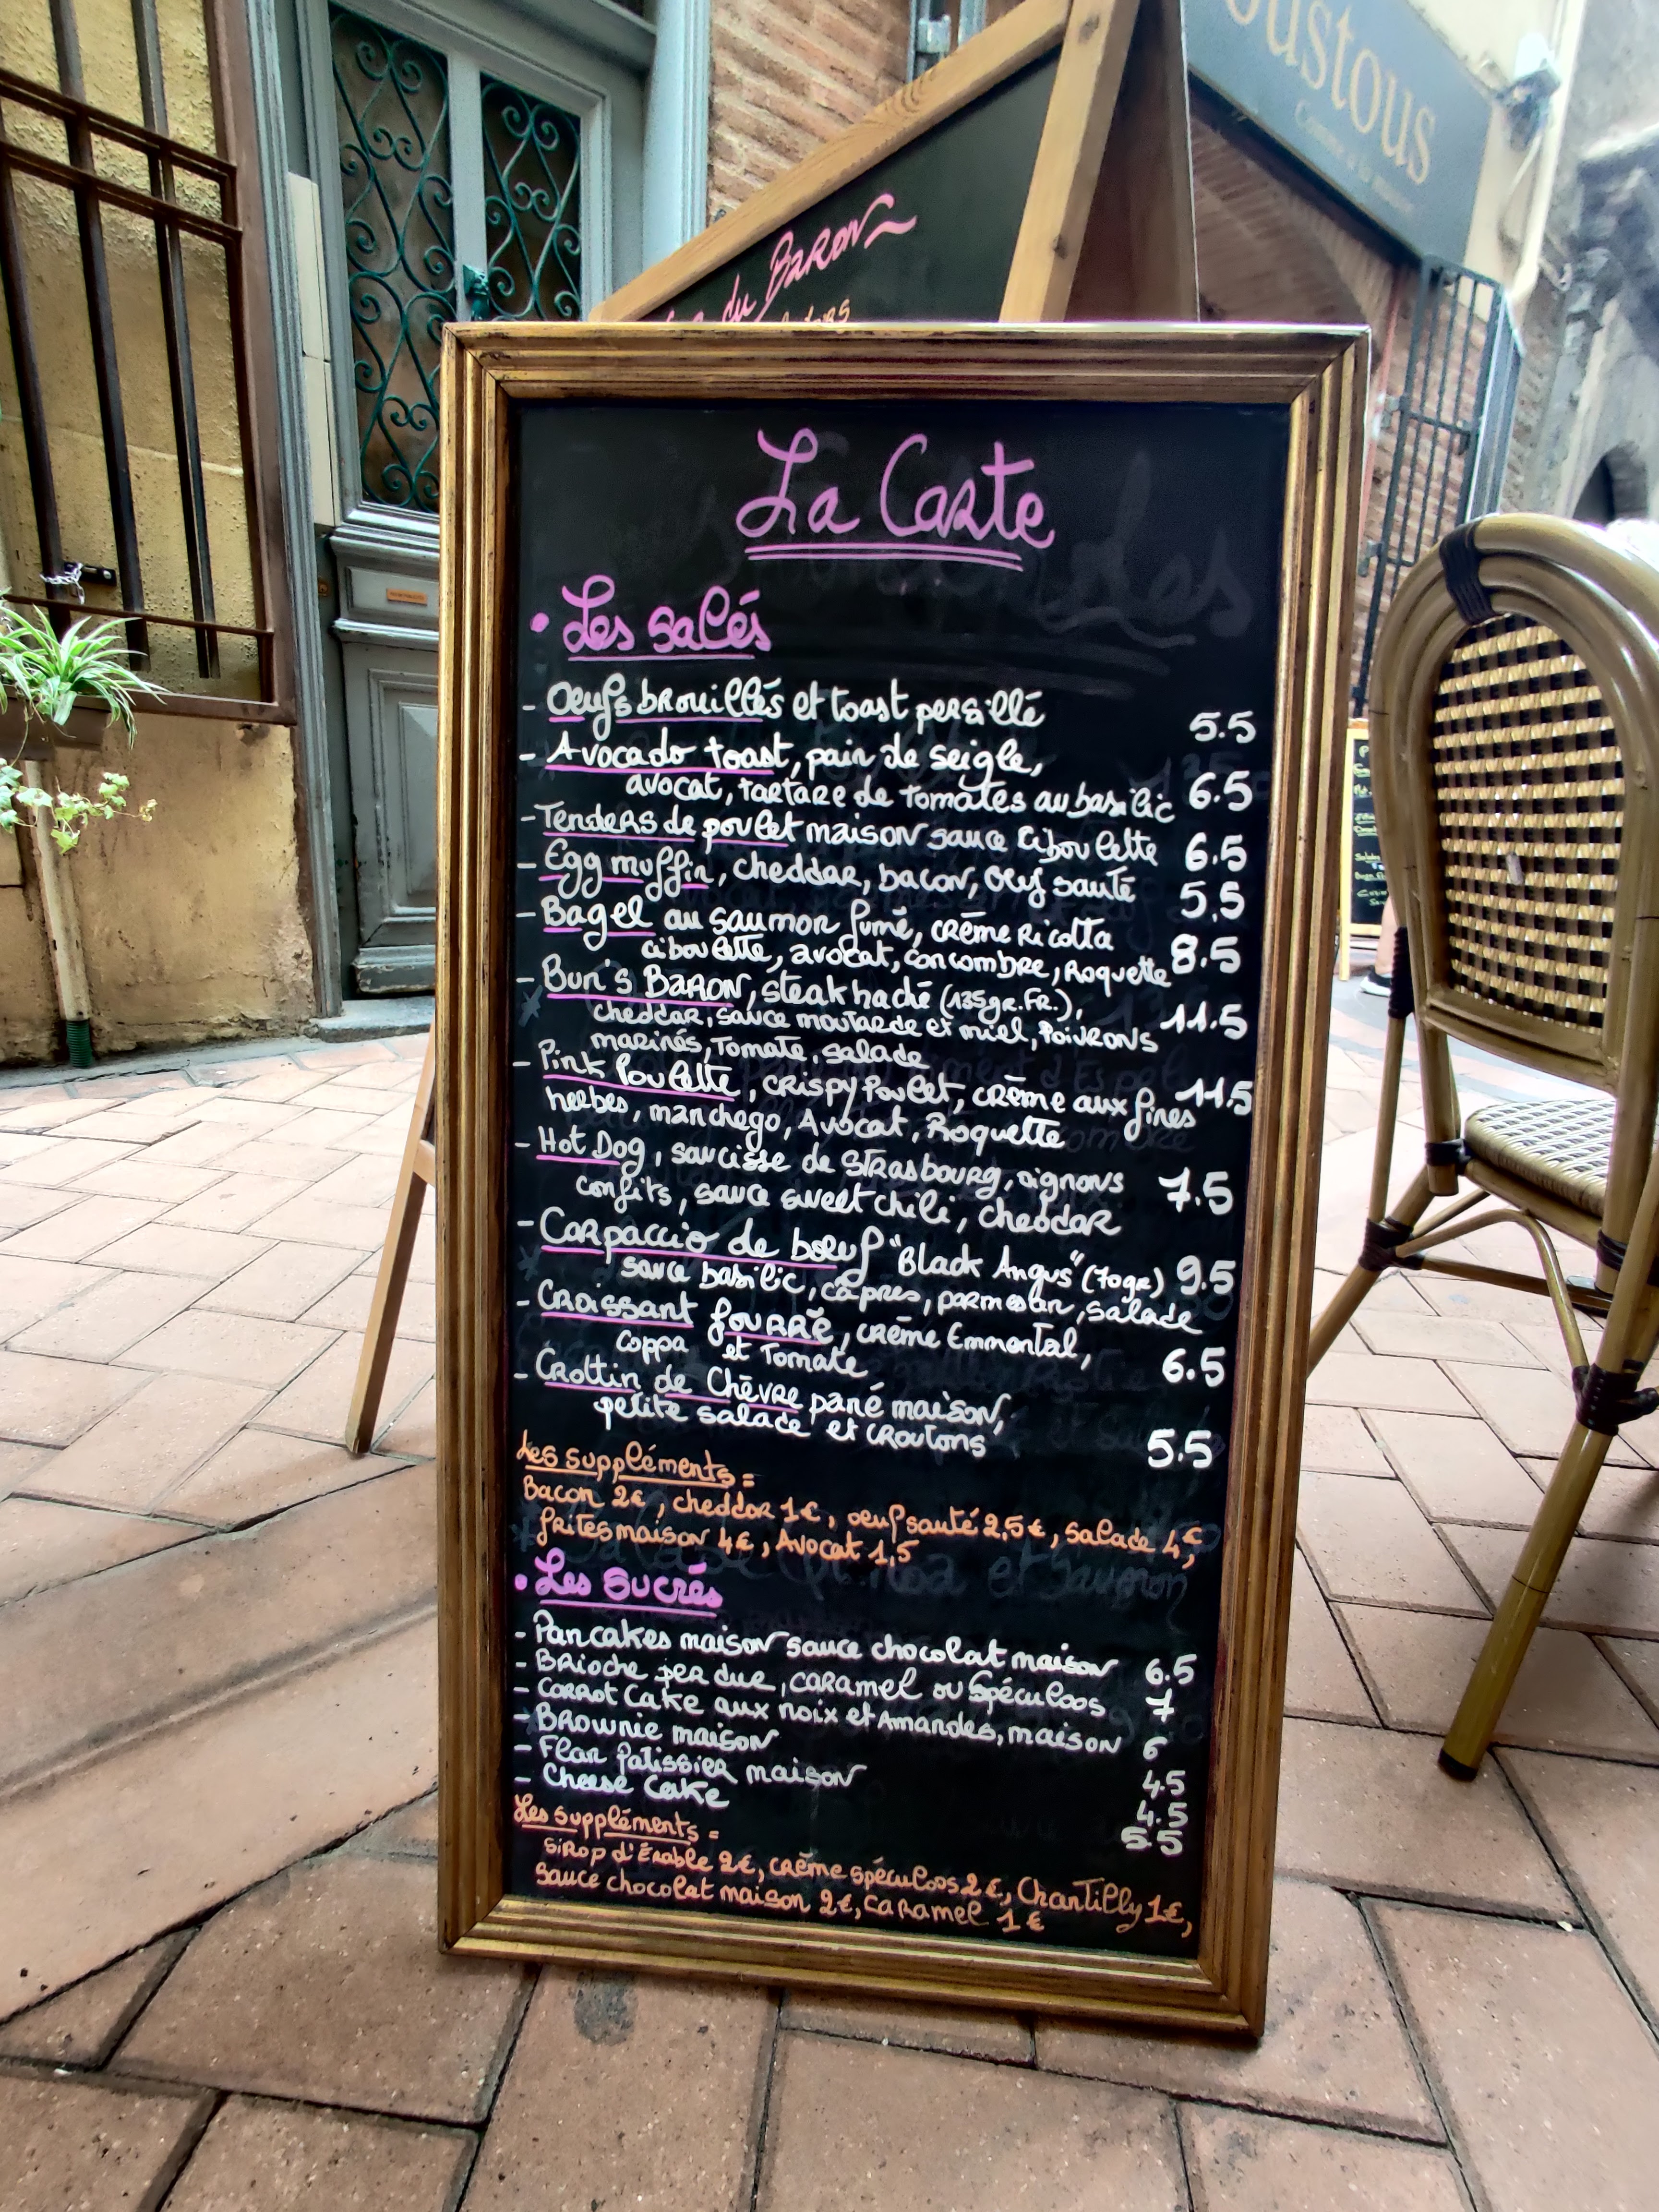 oustous
du Baron
La Carte
• Les salés
- Oeufs brouillés et toast persillé 5.5
- Avocado toast, pain de seigle,
avocat, tartare de tomates au basilic 6.5
- Tenders de poulet maison sauce ciboulette 6.5
- Egg muffin, cheddar, bacon, oeuf sauté 5,5
- Bagel au saumon fumé, crème Ricotta
ciboulette, avocat, concombre, Roquette 8.5
- Bun's Baron, steak haché (135gr.FR.),
cheddar, sauce moutarde et miel, Poivrons 11.5
marinés, Tomate, salade
- Pink Poulette, crispy Poulet, crème aux fines 11.5
herbes, manchego, Avocat, Roquette
- Hot Dog, saucisse de Strasbourg, oignons
confits, sauce sweet chili, Cheddar 7.5
- Carpaccio de boeuf "Black Angus" (70gr) 9.5
sauce basilic, câpres, parmesan, salade
- Croissant fourré, crème Emmental,
coppa et Tomate 6.5
- Crottin de Chèvre pané maison,
petite salade et croutons 5.5
Les suppléments =
Bacon 2€, cheddar 1€, oeuf sauté 2,5€, salade 4€,
frites maison 4€, Avocat 1,5
• Les Sucrés
- Pancakes maison sauce chocolat maison 6.5
- Brioche perdue, caramel ou Spéculoos 7
- Carrot Cake aux noix et Amandes, maison 6
- Brownie maison 4.5
- Flan Patissier maison 4.5
- Cheese Cake 5.5
Les suppléments =
Sirop d'Érable 2€, crème spéculoos 2€, Chantilly 1€,
sauce chocolat maison 2€, Caramel 1€